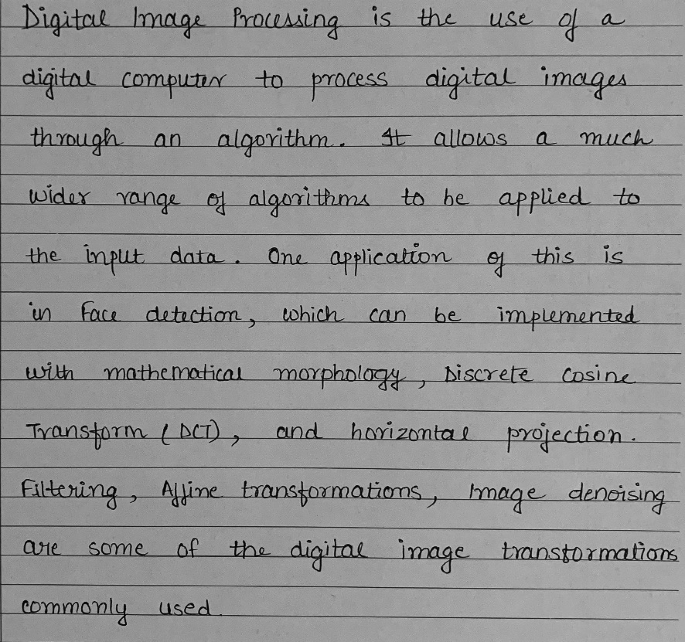 Digital Image Processing is the use of a
digital computer to process digital images
through an algorithm. It allows a much
wider range of algorithms to be applied to
the input data. One application of this is
in face detection, which can be implemented
with mathematical morphology, Discrete cosine
Transform (DCT), and horizontal projection.
Filtering, Affine transformations, Image denoising
are some of the digital image transformations
commonly used